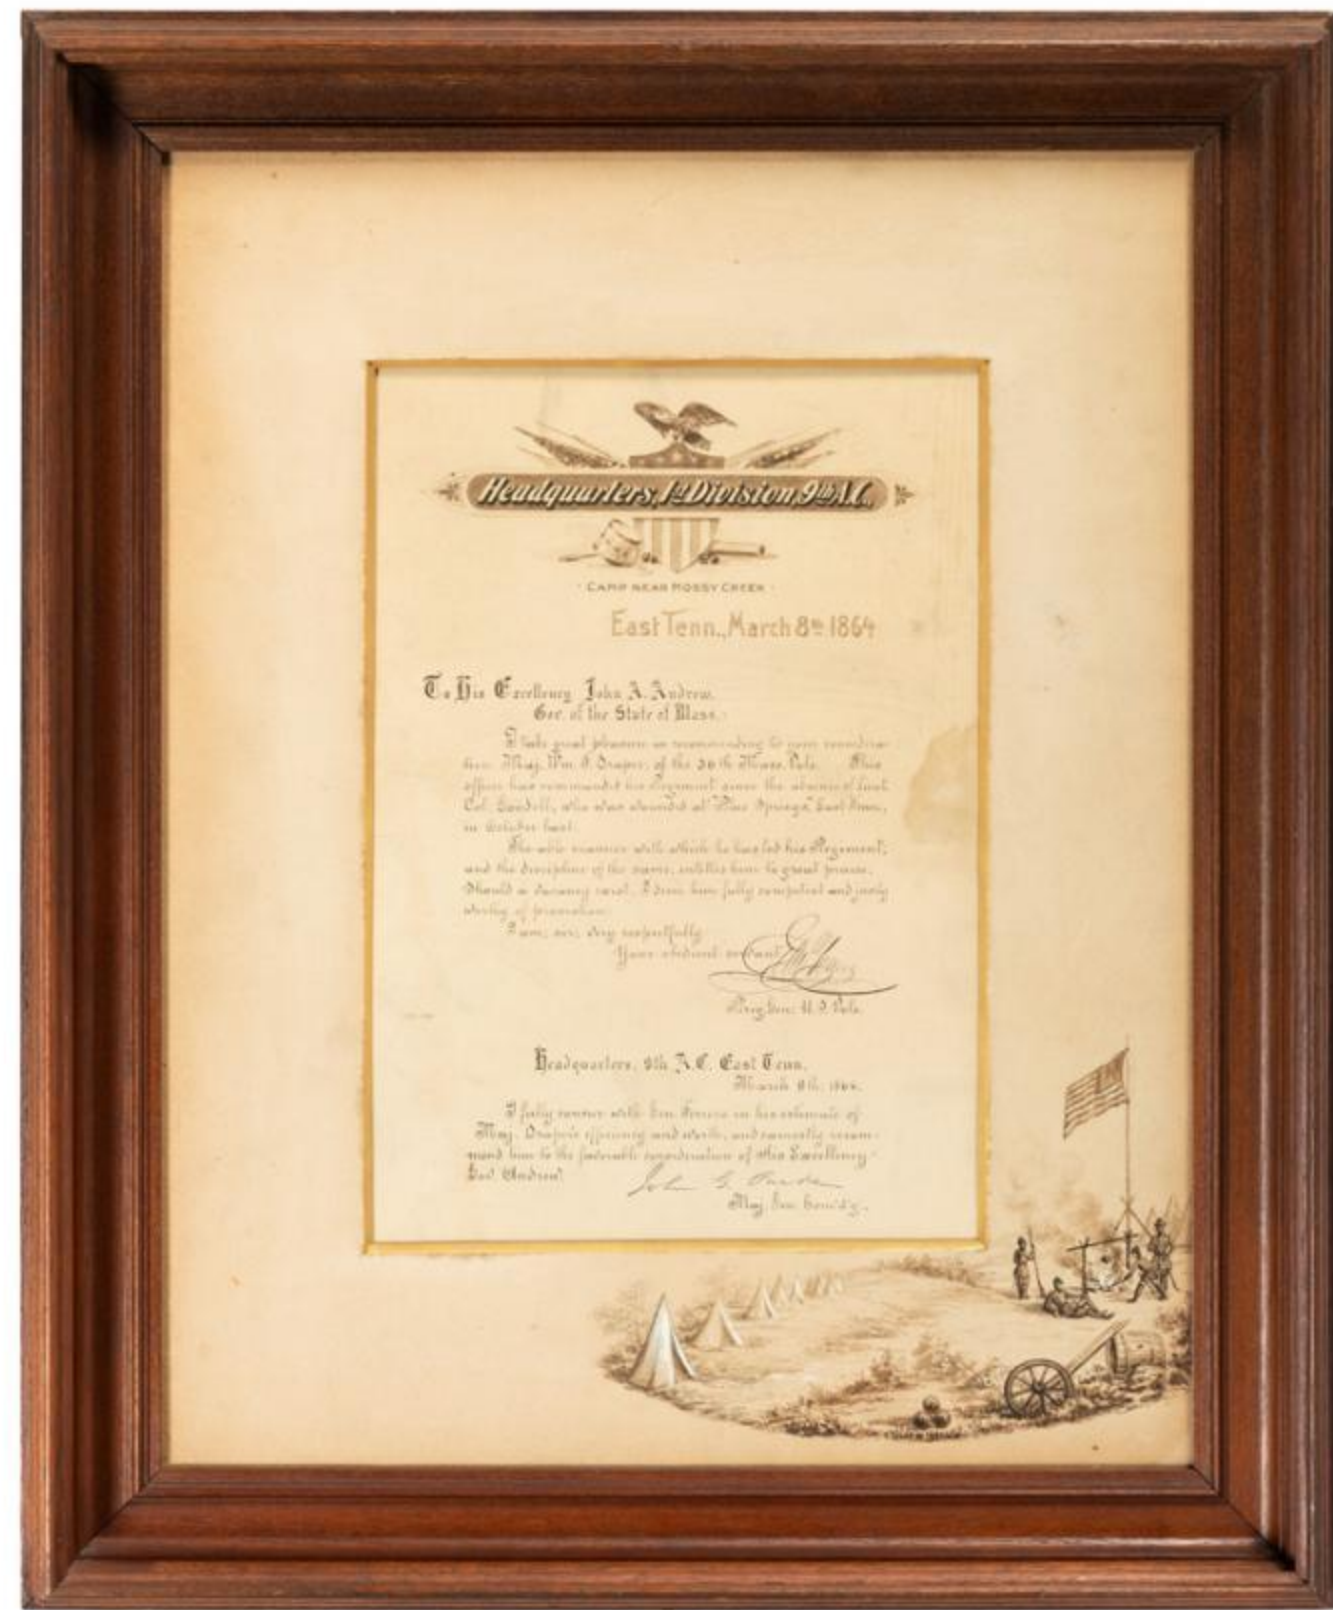 Headquarters, 1st Division, 9th A.C.,
CAMP NEAR MOSSY CREEK
East Tenn., March 8th 1864
To His Excellency John A. Andrew,
Gov. of the State of Mass.:
I take great pleasure in recommending to your considera-
tion Maj. Wm. F. Draper, of the 36th Mass. Vols. This
officer has commanded his Regiment since the absence of Lieut.
Col. Goodell, who was wounded at "Blue Springs," East Tenn.,
in October last.
The able manner with which he has led his Regiment,
and the discipline of the same, entitles him to great praise.
Should a vacancy exist, I deem him fully competent and justly
worthy of promotion.
I am, sir, very respectfully
Your obedient servant
Brig. Gen. U.S. Vols.
Headquarters, 9th A.C. East Tenn.
March 8th, 1864.
I fully concur with Gen. Ferrero in his estimate of
Maj. Draper's efficiency and worth, and earnestly recom-
mend him to the favorable consideration of His Excellency
Gov. Andrew.
John G. Parke
Maj. Gen. Com'd'g.